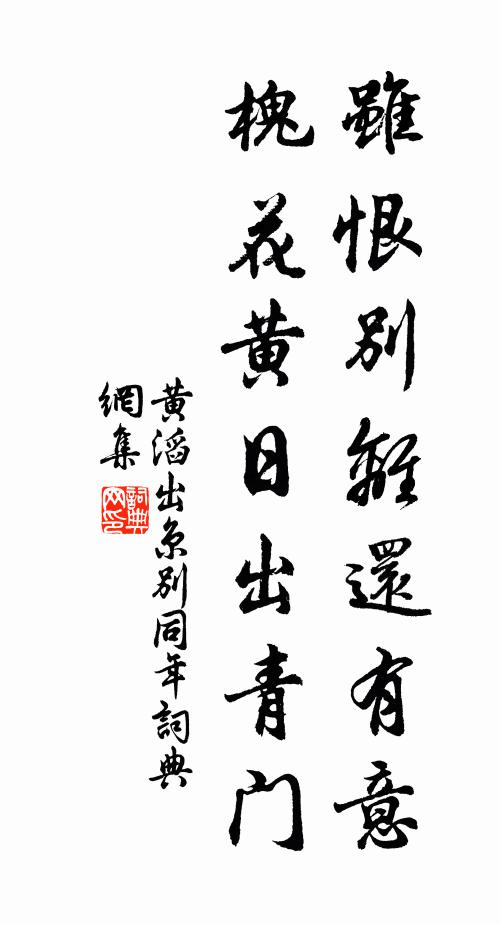 雖恨別離還有意
槐花黃日出青门
黃滔出京別同年詞典
網集
詞典
网印